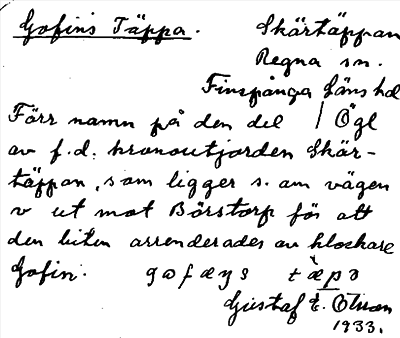 Gofins Täppa. Skärtäppan
Regna sn.
Finspånga läns hd
Förr namn på den del / Ögl
av f.d. kronoutjorden Skär-
täppan, som ligger s. om vägen
v ut mot Börstorp för att
den biten arrenderades av klockare
Gofin. gofæys tæpa
Gustaf E.
1933.